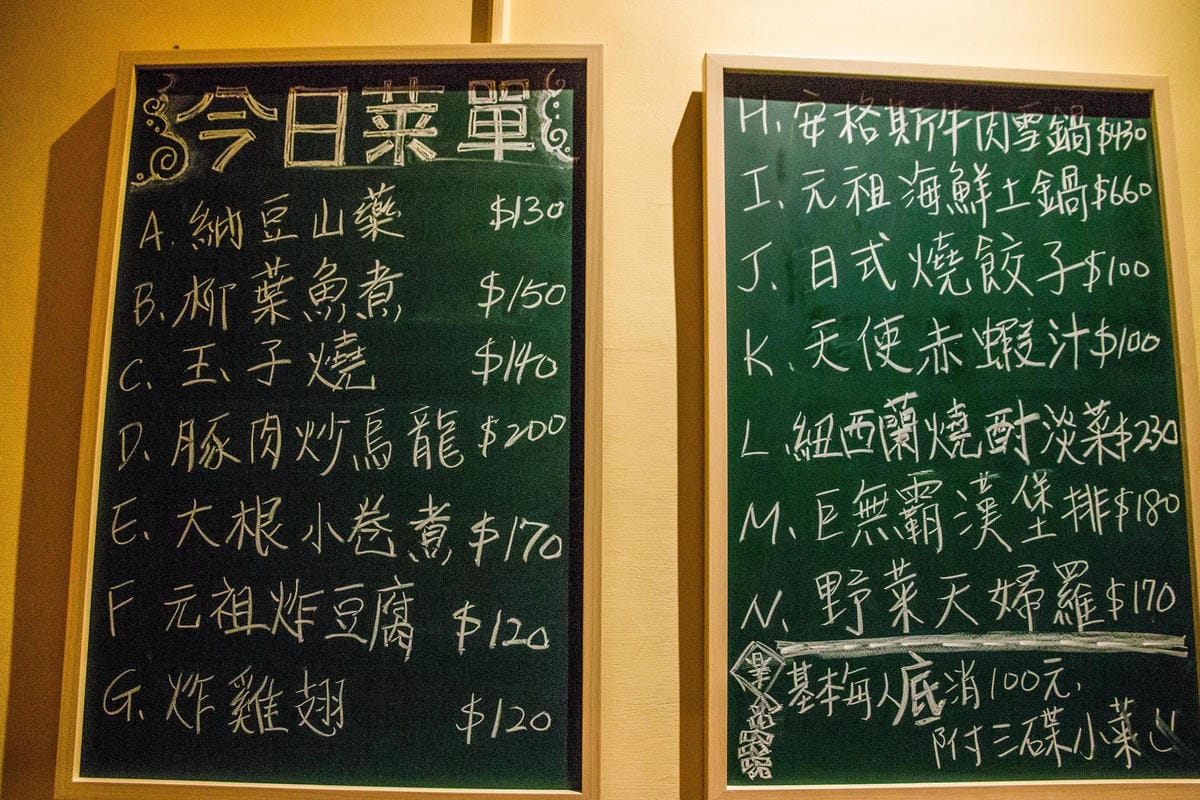 今日菜單
A. 納豆山藥 $130
B. 柳葉魚煮 $150
C. 玉子燒 $140
D. 豚肉炒烏龍 $200
E. 大根小卷煮 $170
F 元祖炸豆腐 $120
G. 炸雞翅 $120
H. 安格斯牛肉雪鍋 $430
I. 元祖海鮮土鍋 $660
J. 日式燒餃子 $100
K. 天使赤蝦汁 $100
L. 紐西蘭燒酎淡菜 $230
M. 巨無霸漢堡排 $180
N. 野菜天婦羅 $170
基本每人底消100元,
附三碟小菜